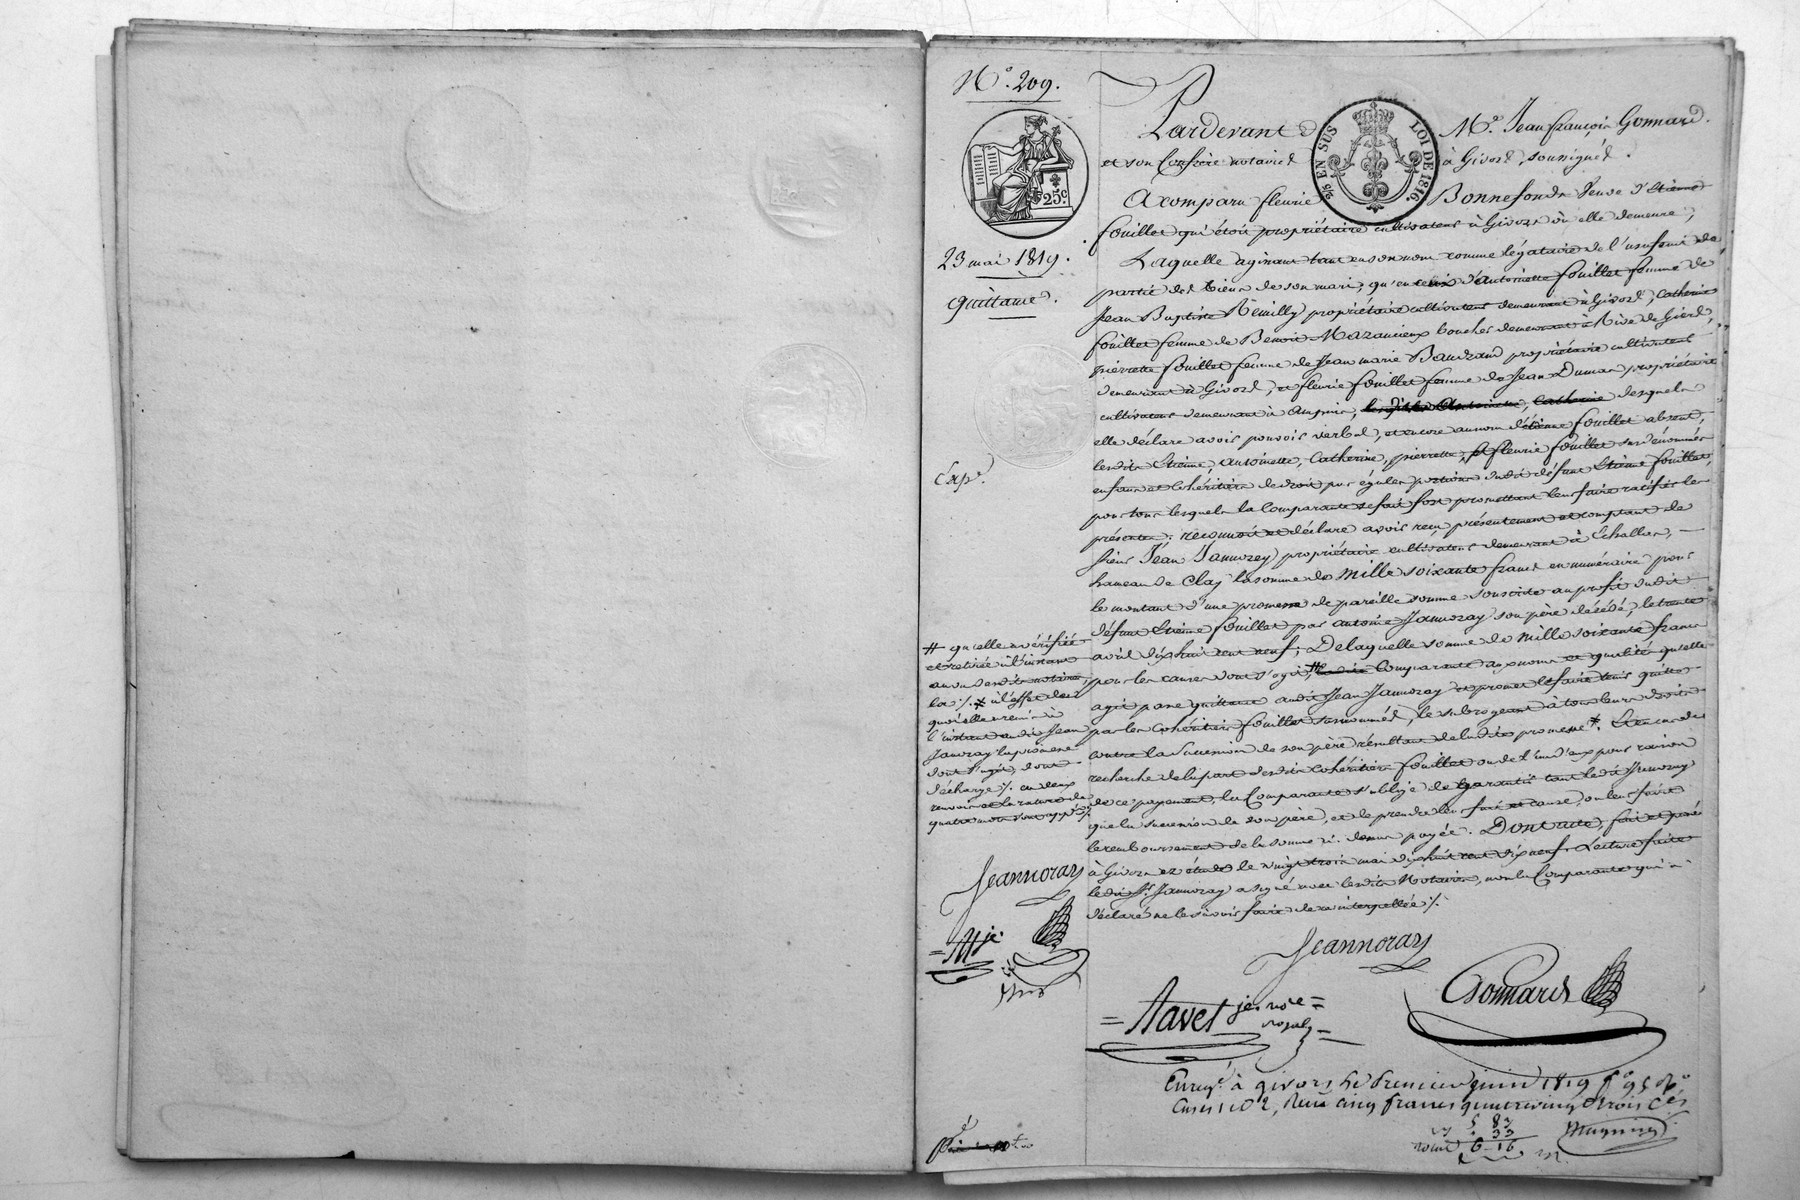 N.º 209.
25 c.
23 mai 1819.
Quittance.
Pardevant Mº. Jean françois Gonnard.
et son Confrère notaires à Givors, soussignés.
EN SUS LOI DE 1816.
A comparu fleurie Bonnefond Veuve d'Etienne
fouillet qui étoit propriétaire cultivateur à Givors où elle demeure,
Laquelle agissant tant en son nom comme légataire de l'usufruit de
partie des biens de son mari, qu'en ceux d'antoinette fouillet femme de
Jean Baptiste Rémilly propriétaire cultivateur demeurant à Givors, Catherine
fouillet femme de Benoit Mazancieux boucher demeurant à Rive de Gier,
pierrette fouillet femme de Jean marie Baudrand propriétaire cultivateur
demeurant à Givors, et fleurie fouillet femme de Jean Dumas propriétaire
cultivateur demeurant à Ampuis, desquels
elle déclare avoir pouvoir verbal, et encore au nom d'étienne fouillet absent,
lesdits Etienne, antoinette, Catherine, pierrette, et fleurie fouillet susdénommés
enfans et cohéritiers de droit par égales portions dudit défunt Etienne fouillet,
pour tous lesquels la Comparante se fait fort promettant leur faire ratifier les
présentes; reconnoit et déclare avoir reçu présentement et comptant de
sieur Jean Jannoray propriétaire cultivateur demeurant à Echallas,
hameau de Clay la somme de mille soixante francs en numéraire pour
le montant d'une promesse de pareille somme souscrite au profit dudit
défunt Etienne fouillet par antoine Jannoray son père décédé, le trente
avril dix huit cent neuf; De laquelle somme de mille soixante francs
pour les causes dont s'agit, # la Comparante aux noms et qualités qu'elle
agit passe quittance audit Jean Jannoray et promet le faire tenir quitte
par les Cohéritiers fouillet susnommés, le subrogeant à tous leurs droits
contre la Succession de son père résultant de ladite promesse *. Et en cas de
recherche de la part desdits Cohéritiers fouillet ou de l'un d'eux pour raison
de ce payement, la Comparante s'oblige de garantir tant ledit Jannoray
que la succession de son père, et de prendre leur fait et cause, ou leur faire
le remboursement de la somme ci-dessus payée. Dont acte, fait et passé
à Givors ez études le vingt trois mai dix huit cent dix neuf. Lecture faite
ledit Sr. Jannoray a signé avec lesdits Notaires, non la Comparante qui a
déclaré ne le savoir faire de ce interpellée ./.
Exp.
# qu'elle a vérifiée
et retirée à l'instant
au vu desdits notaires
* à l'effet de
quoi elle a remis à
l'instant audit Jean
Jannoray la promesse
dont s'agit, dont
décharge ./. ces deux
renvois et la rature de
quatre mots sont app.és
Jeannoray
Jeannoray
Gonnard
Navet je. nore
royal
Enreg.é à givors le Premier juin 1819 fº 95 Rº
Cases 1 et 2, Reçu cinq francs quatrevingt trois c.es
5 83
33
6 16